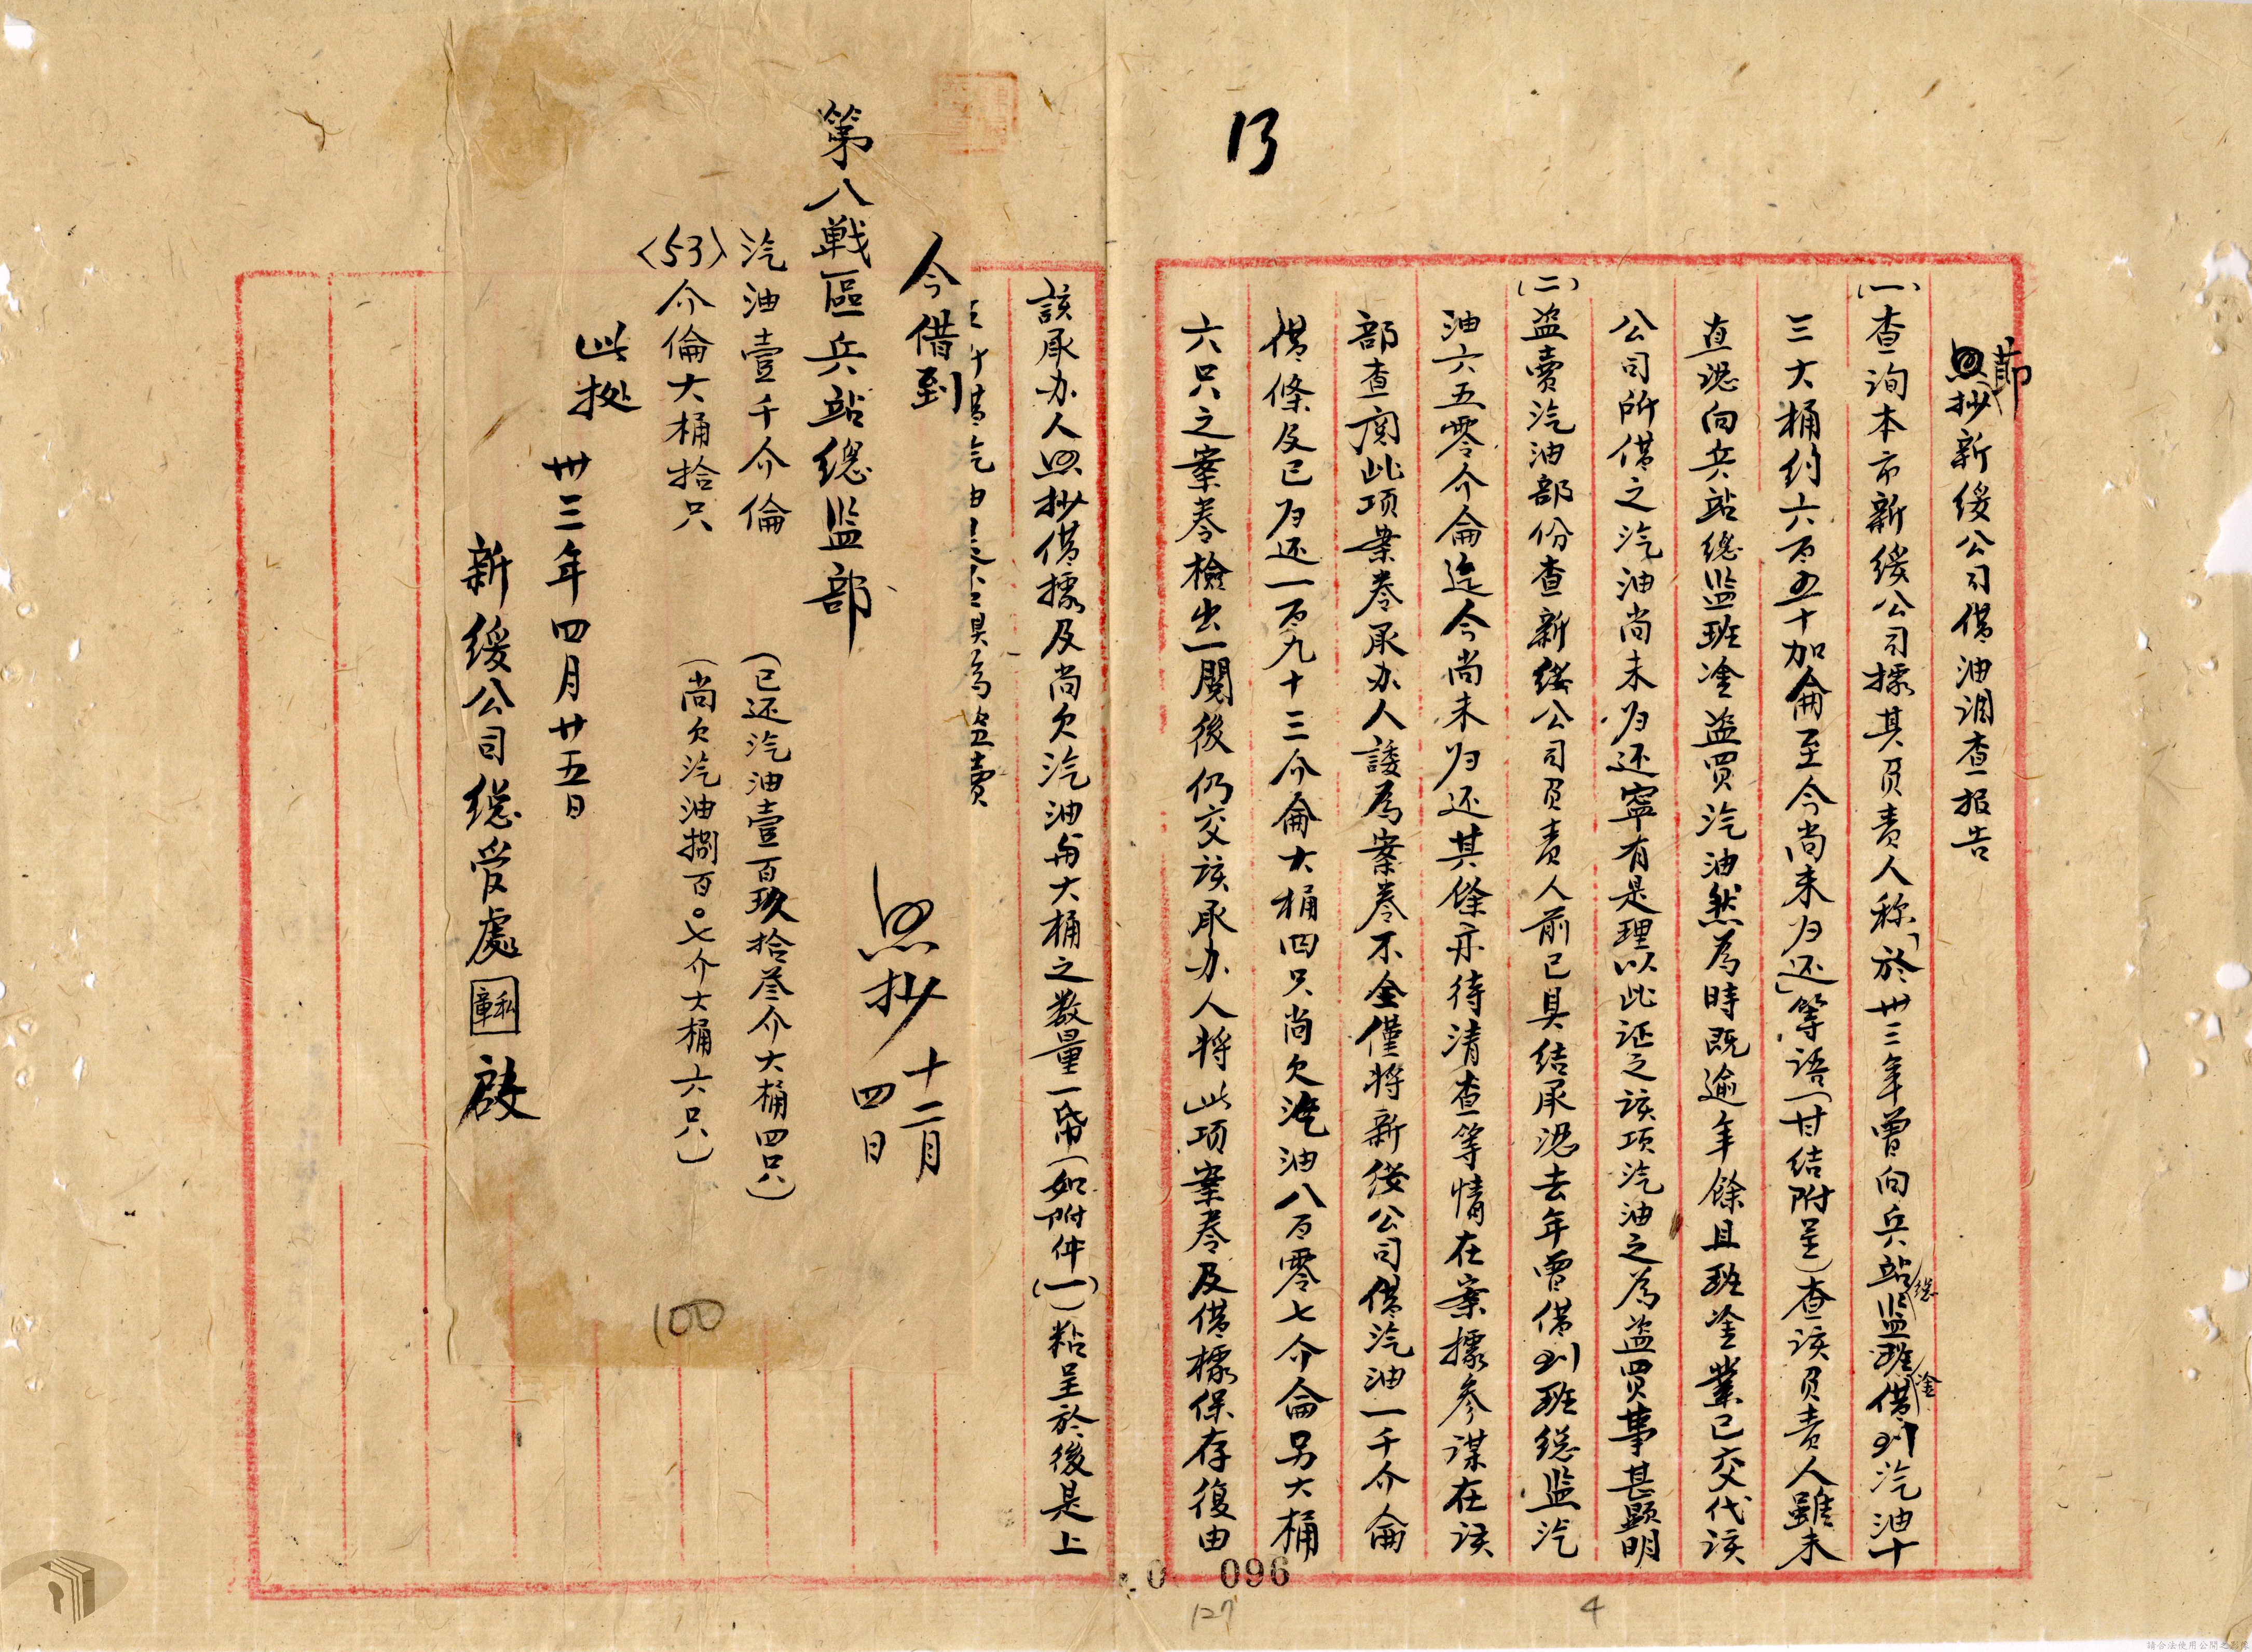 13
節
照抄新綏公司借油調查報告
(一)查詢本市新綏公司據其負責人称「於卅三年曾向兵站總監班淦借到汽油十
三大桶約六百五十加侖至今尚未归还」等语(甘结附呈)查该負责人雖未
直認向兵站總監班淦盗買汽油然為時既逾年餘且班淦業已交代该
公司所借之汽油尚未归还寧有是理以此証之该项汽油之為盗買事甚顯明
(二)盗賣汽油部份查新綏公司負责人前已具结承認去年曾借到班總監汽
油六五零介侖迄今尚未归还其餘亦待清查等情在案據参谋在该
部查阅此项案卷承办人諉為案卷不全僅将新綏公司借汽油一千介侖
借條及已归还一百九十三介侖大桶四只尚欠汽油八百零七介侖另大桶
六只之案卷檢出一閱後仍交该承办人将此项案卷及借據保存復由
該承办人照抄借據及尚欠汽油与大桶之数量一帋(如附件(一))粘呈於後是上
借汽油 具為盗賣
今借到
第八戰區兵站總监部
照抄 十二月四日
汽油壹千介倫 (已还汽油壹百玖拾叁介大桶四只)
〈53〉介倫大桶拾只 (尚欠汽油捌百〇七介大桶六只)
此捝
卅三年四月廿五日
新綏公司總管處 私章 啟
100
0 096
127
4
請合法使用公開之影像